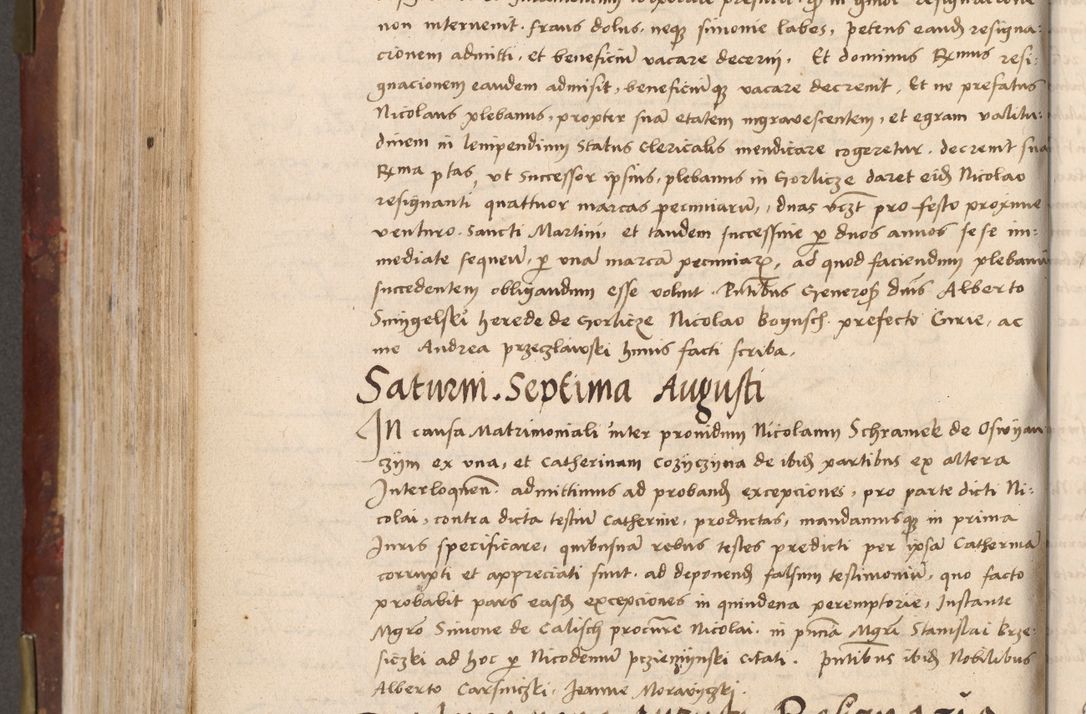 non intervenit. fraus dolus, neqȝ simonie labes, petens eandȝ resigna:
cionem admitti, et beneficiũ vacare decerni. Et dominus Rxmus resi:
gnacionem eandem admisit, beneficiũqȝ vacare decrevit, Et ne prefatus
Nicolaus plebanus, propter suã etatem ingravescentem, et egram valitu:
dinem in lenipendium Status Clericalis mendicare cogeretur. decrevit sua
Rxma ptas, ut Successor ipsius, plebanus in Gorlicze daret eidȝ Nicolao
resignanti quattuor marcas pecuniarũ, duas vczt pro festo proxime
venturo. Sancti Martini, et tandem successive p duos annos se se im:
mediate sequeñ, p unã marcã pecuniarȝ, ad quod faciendum plebanũ
succedentem obligandum esse voluit. Pñtibus Generosȝ dnis Alberto
Swyngelski herede de Gorlicze Nicolao Boynsch. prefecto Curie, ac
me Andrea przeczlawski huius facti scriba.
Saturni. Septima Augusti
IN causa Matrimoniali inter providum Nicolaum Schramek de Oswyan
czym ex una, et Catherinam Cozyczyna de ibidȝ partibus ex altera
Interloqueñ. admittimus ad probandȝ excepciones, pro parte dicti Ni:
colai, contra dicta testiũ Catherine, productas, mandamusqȝ in prima
Juris specificare, quibusnã rebus testes predicti per ipsã Catherinã
corrupti et appreciati sunt. ad deponendȝ falsum testimoniũ, quo facto
probabit pars easdȝ excepciones in quindena peremptorie, Instante
Mgrõ Simone de Calisch procũre Nicolai. in pñcia Mgri Stanislai Brze:
siczki ad hoc p Nicodemũ pczieniynski citati. pñtibus ibidȝ Nobilibus
Alberto Carsniczki, Joanne Morawyczki.